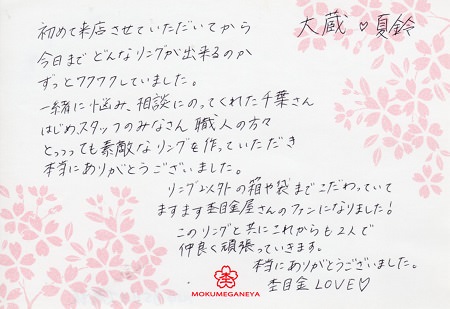 大蔵♡夏鈴
初めて来店させていただいてから
今日まで どんなリングが出来るのか
ずっとワクワクしていました。
一緒に悩み、相談にのってくれた千葉さん
はじめ、スタッフのみなさん 職人の方々
とっっっても素敵なリングを作っていただき
本当にありがとうございました。
リング以外の箱や袋までこだわっていて
ますます杢目金屋さんのファンになりました!
このリングと共にこれからも2人で
仲良く頑張っていきます。
本当にありがとうございました。
杢目金LOVE♡
MOKUMEGANEYA